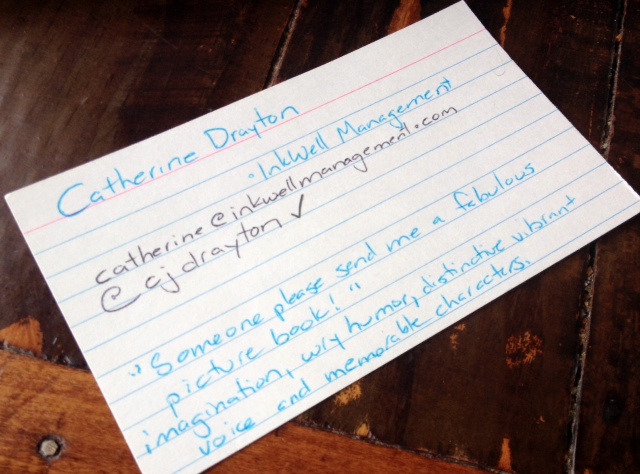 Catherine Drayton
· InkWell Management
catherine@inkwellmanagement.com
@cjdrayton ✓
"Someone please send me a fabulous
picture book!"
imagination, wry humor, distinctive vibrant
voice and memorable characters.